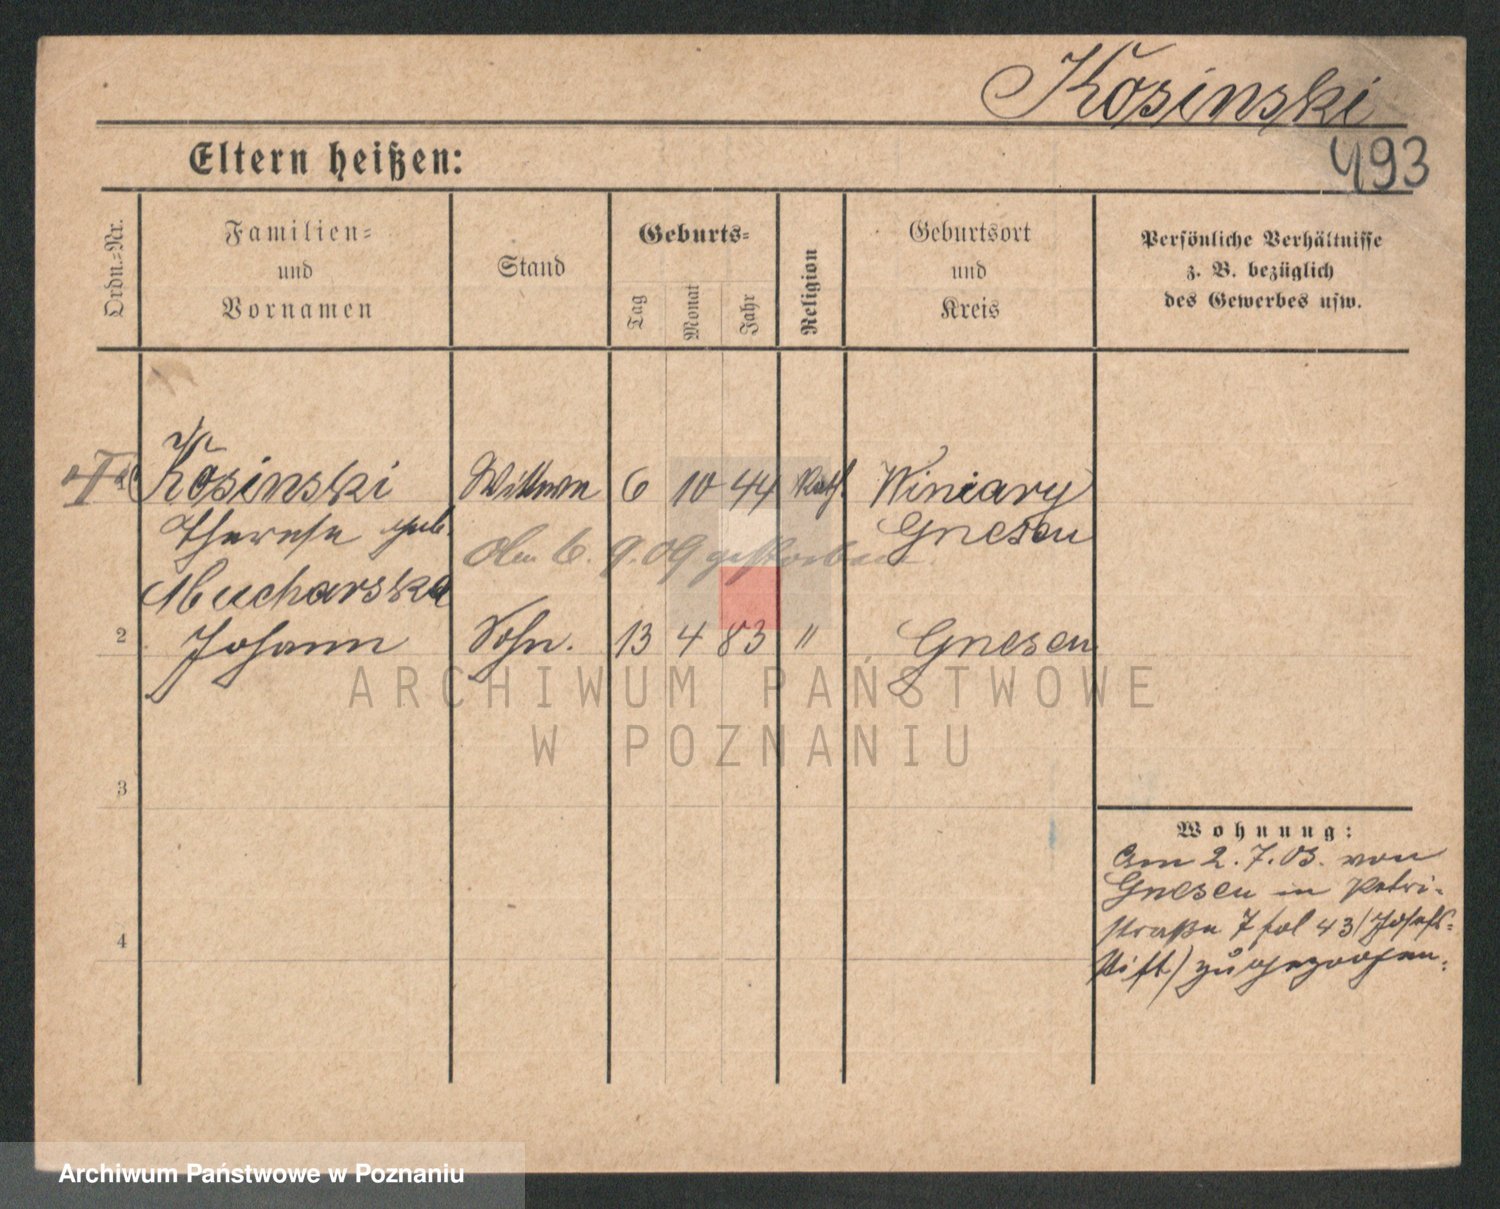 Kosinski
493
Eltern heißen:
Ordn.-Nr.
Familien-
und
Vornamen
Stand
Geburts-
Tag
Monat
Jahr
Religion
Geburtsort
und
Kreis
Persönliche Verhältnisse
z. B. bezüglich
des Gewerbes usw.
Kosinski Wittwe 6 10 44 Kath Winiary
Therese geb. Gnesen
Am 6. 9. 09 gestorben
Mucharska
2 Johann Sohn. 13 4 83 " Gnesen
ARCHIWUM PAŃSTWOWE
W POZNANIU
3
Wohnung:
Am 2. 7. 03. von
Gnesen in Petri-
straße 7 fol 43 (Josefs-
stift) zugezogen.
4
Archiwum Państwowe w Poznaniu